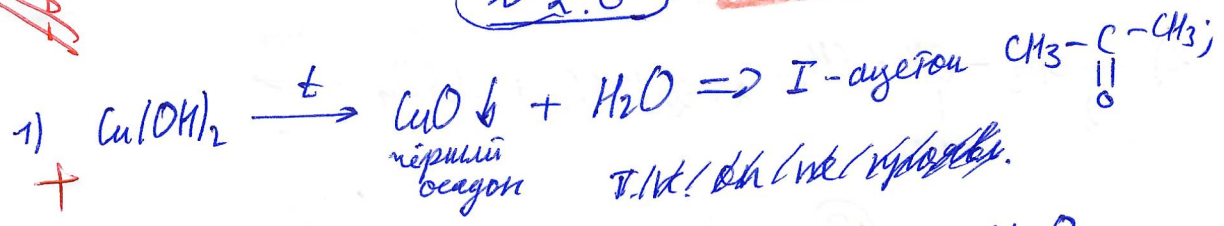 1) Cu(OH)2 —t→ CuO↓ + H2O => I - ацетон CH3-C-CH3;
||
O
чёрный
осадок
+